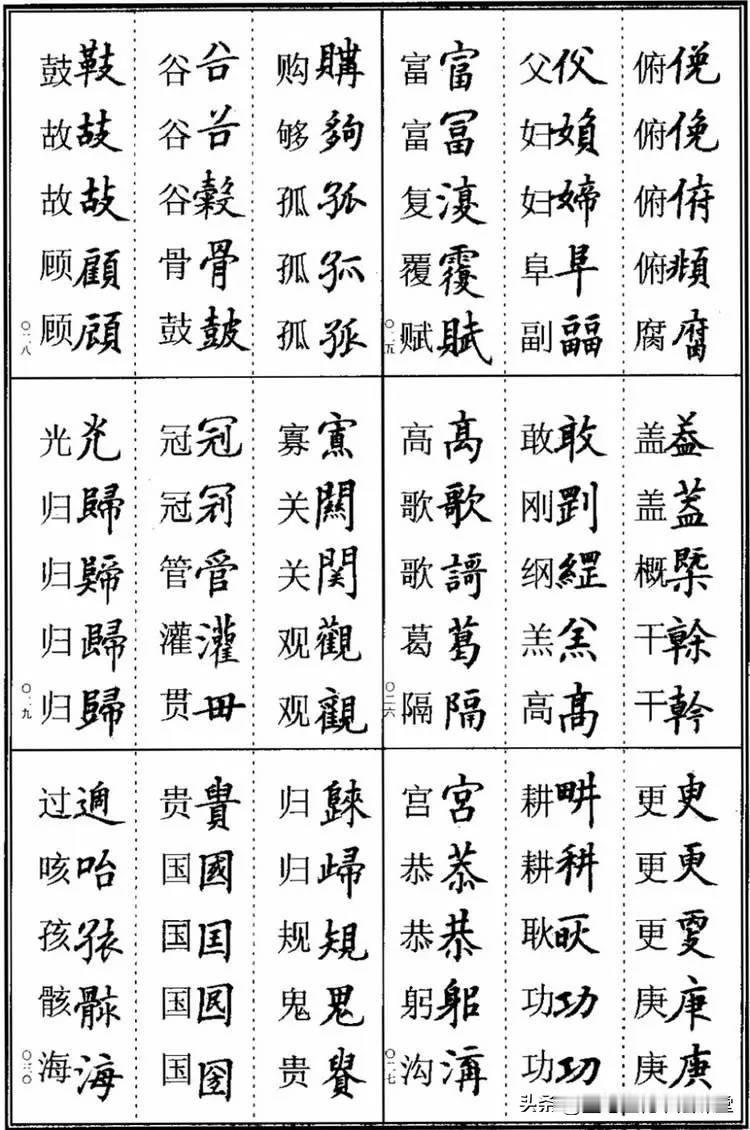 俯俛 俯俛 俯俯 俯頫 腐腐
父 妇媍 妇婦 阜阜 副副
富富 富冨 复復 覆覆 赋賦
○二五
盖葢 盖蓋 概槩 干乾 干幹
敢敢 刚 纲綱 羔羔 高髙
高高 歌歌 歌謌 葛葛 隔隔
○二六
更更 更更 更 庚庚 庚庚
耕畊 耕耕 耿耿 功功 功㓛
宫宮 恭恭 恭恭 躬躳 沟溝
○二七
购購 够夠 孤孤 孤孤 孤孤
谷谷 谷谷 谷穀 骨骨 鼓皷
鼓鼓 故故 故故 顾顧 顾顧
○二八
寡寡 关關 关関 观觀 观觀
冠冠 冠冠 管管 灌灌 贯毌
光光 归歸 归歸 归歸 归歸
○二九
归歸 归歸 规規 鬼鬼 贵貴
贵貴 国國 国囯 国囻 国圀
过過 咳咍 孩孩 骸骸 海海
○三○
头条